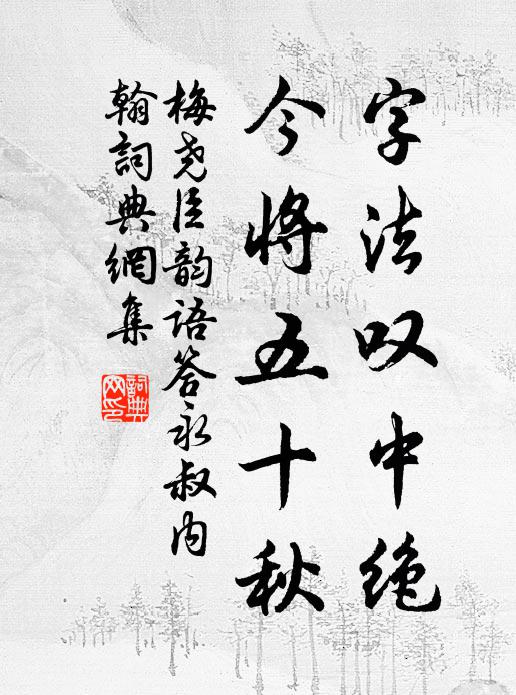 字法叹中绝
今将五十秋
梅尧臣韵语答永叔内
翰詞典網集
詞典网印